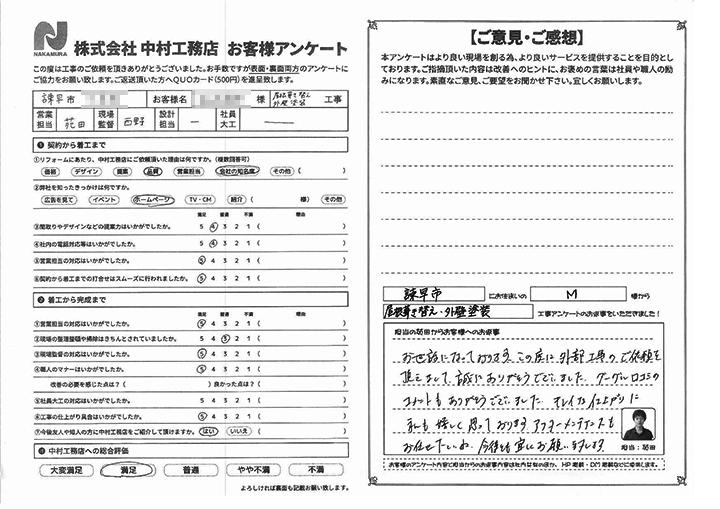 NAKAMURA
株式会社 中村工務店 お客様アンケート
この度は工事のご依頼を頂きありがとうございました。お手数ですが表面・裏面両方のアンケートに
ご協力をお願い致します。ご返送頂いた方へQUOカード(500円)を進呈致します。
諫早市 お客様名 様 屋根葺き替え 外壁塗装 工事
営業担当 苑田 現場監督 西野 設計担当 ー 社員大工 ー
❶ 契約から着工まで
①リフォームにあたり、中村工務店にご依頼頂いた理由は何ですか。(複数回答可)
価格 デザイン 提案 品質 営業担当 会社の知名度 その他 ( )
②弊社を知ったきっかけは何ですか。
広告を見て イベント ホームページ TV・CM 紹介 ( 様) その他
満足 普通 不満 理由
③間取りやデザインなどの提案力はいかがでしたか。 5 4 3 2 1 ( )
④社内の電話対応等はいかがでしたか。 5 4 3 2 1 ( )
⑤営業担当の対応はいかがでしたか。 5 4 3 2 1 ( )
⑥契約から着工までの打合せはスムーズに行われましたか。 5 4 3 2 1 ( )
❷ 着工から完成まで
満足 普通 不満 理由
①営業担当の対応はいかがでしたか。 5 4 3 2 1 ( )
②現場の整理整頓や掃除はきちんとされていましたか。 5 4 3 2 1 ( )
③現場監督の対応はいかがでしたか。 5 4 3 2 1 ( )
④職人のマナーはいかがでしたか。 5 4 3 2 1 ( )
改善の必要を感じた点は?( )良かった点は?( )
⑤社員大工の対応はいかがでしたか。 5 4 3 2 1 ( )
⑥工事の仕上がり具合はいかがですか。 5 4 3 2 1 ( )
⑦今後友人や知人の方に中村工務店をご紹介して頂けますか。 はい いいえ ( )
❸ 中村工務店への総合評価
大変満足 満足 普通 やや不満 不満
よろしければ裏面も記載お願い致します。
【ご意見・ご感想】
本アンケートはより良い現場を創る為、より良いサービスを提供することを目的と
しております。ご指摘頂いた内容は改善へのヒントに、お褒めの言葉は社員や職人の励
みになります。素直なご意見、ご要望をお聞かせ下さい。宜しくお願いします。
諫早市 にお住まいの M 様から
屋根葺き替え・外壁塗装 工事アンケートのお返事をいただきました!
担当の苑田からお客様へのお返事
お世話になっております。この度は外部工事のご依頼を
頂きまして、誠にありがとうございました。グーグル口コミの
コメントもありがとうございました。キレイな仕上がりに
私も嬉しく思っております。アフターメンテナンスも
お任せ下さいね。今後とも宜しくお願い致します。
担当:苑田
お客様のアンケート内容と担当からのお返事内容は社内共有のほか、HP掲載・DM掲載などに使用します。